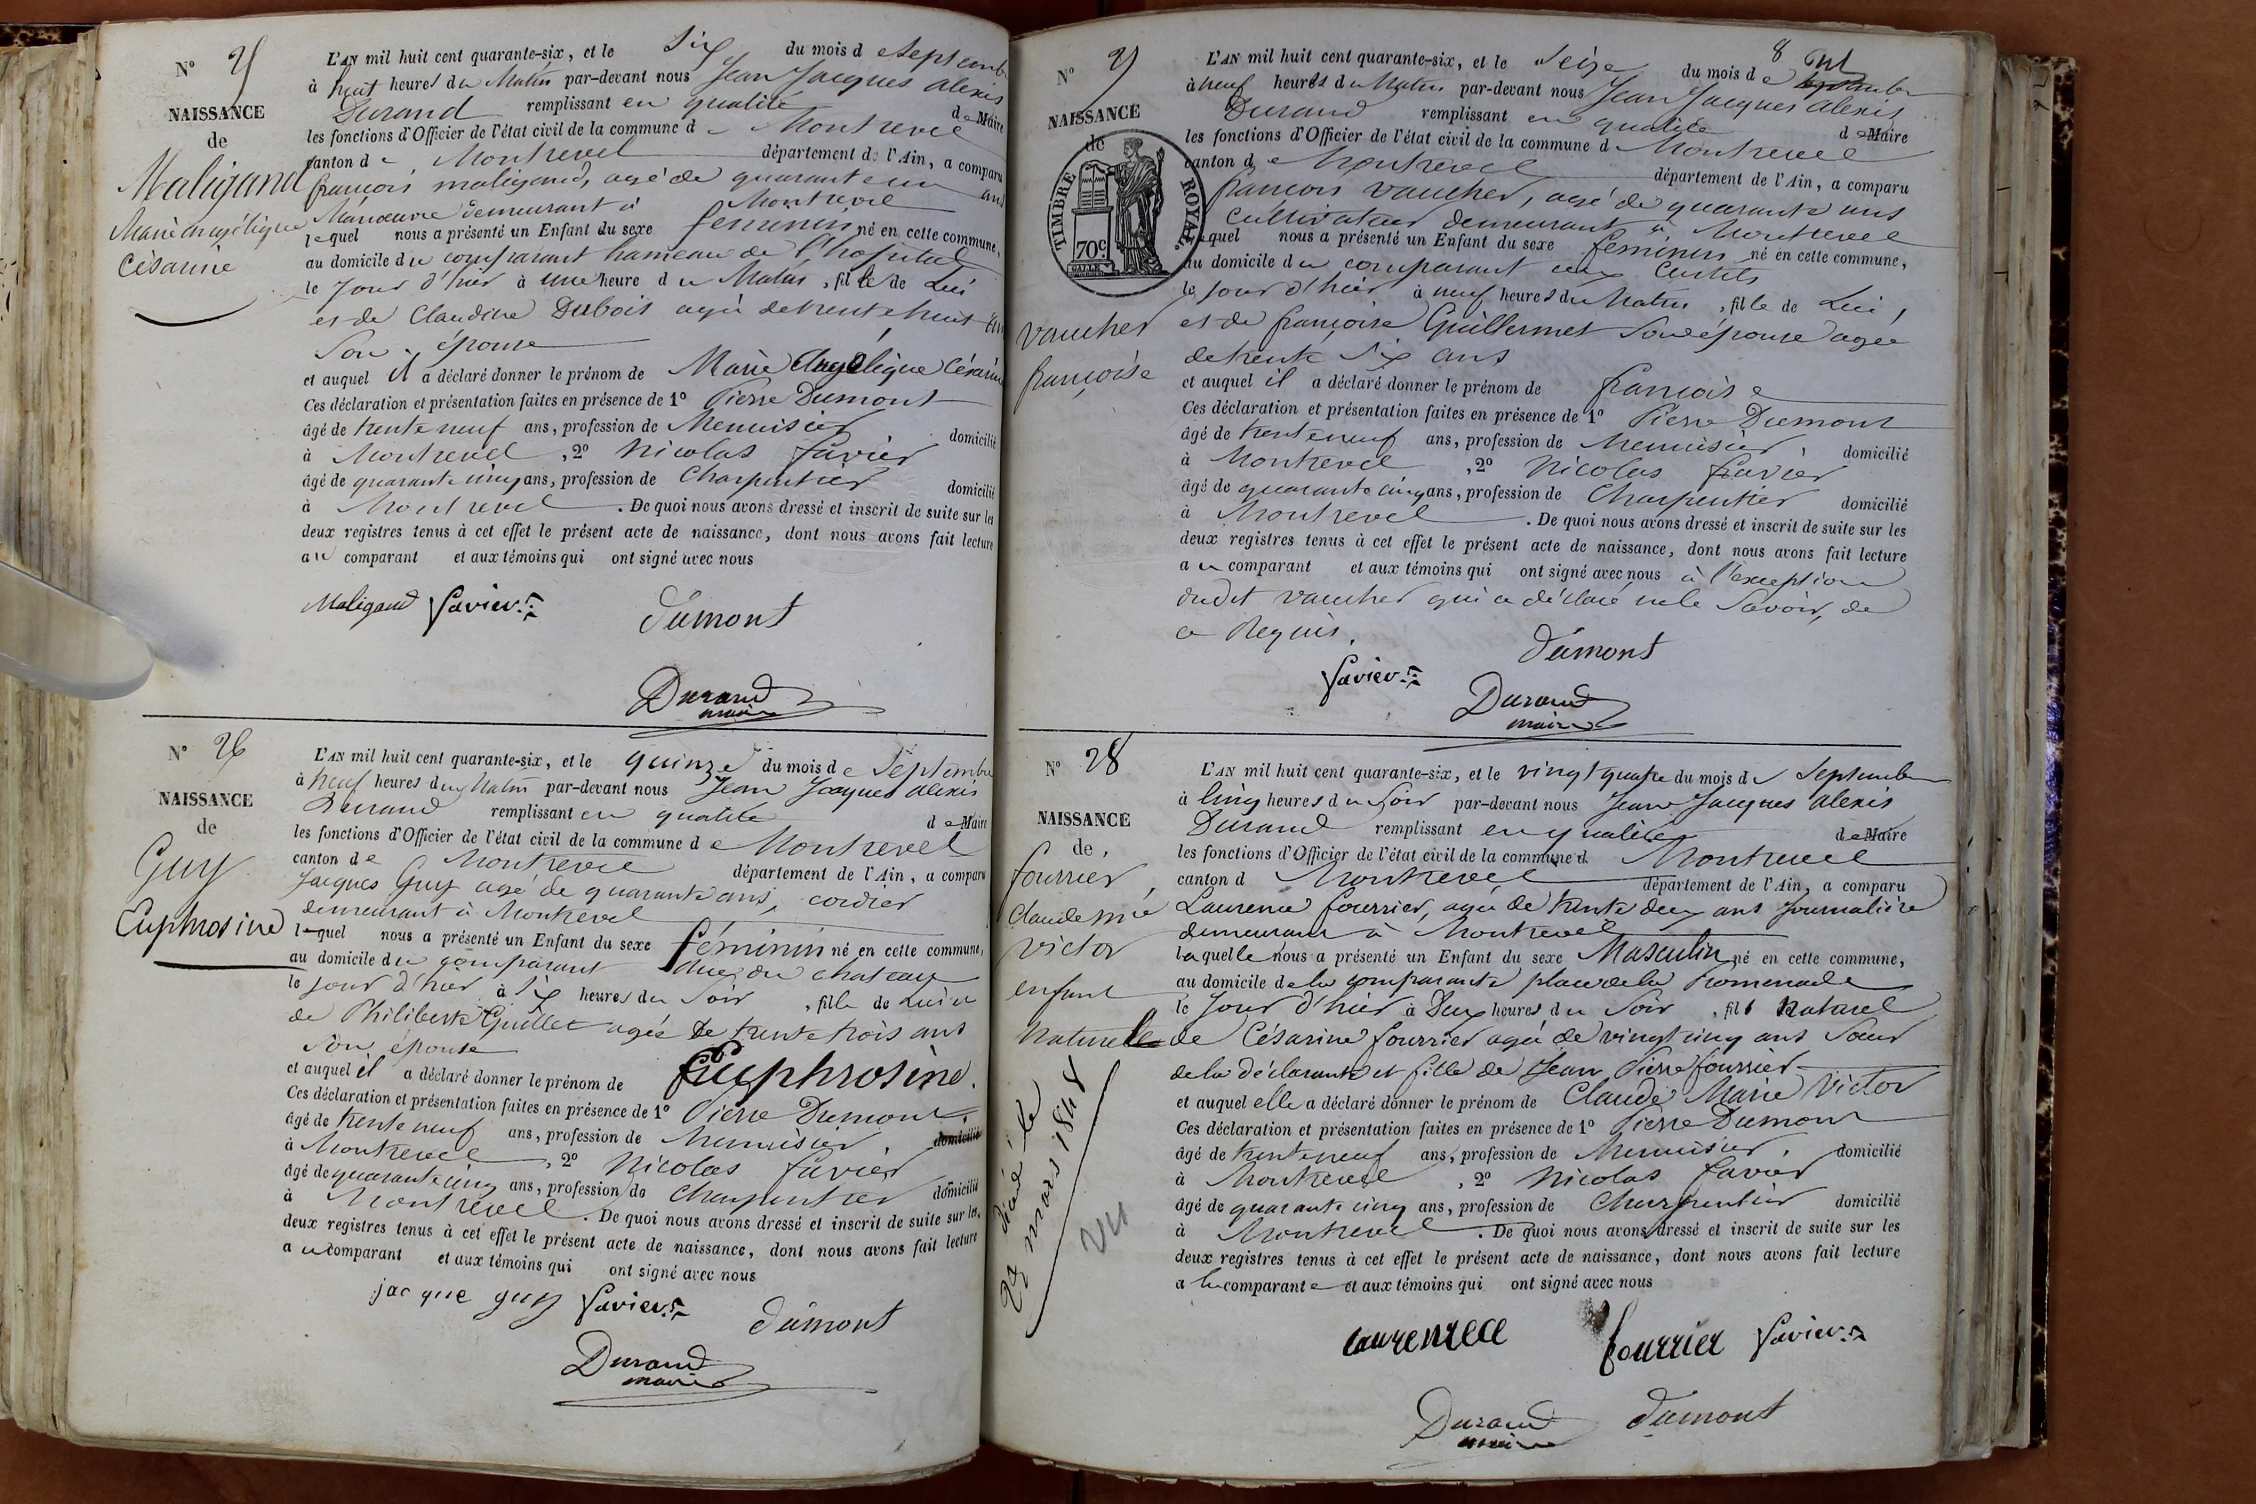 N° 25
NAISSANCE
de
Maligand
Marie angélique
Césarine
L'AN mil huit cent quarante-six, et le Six du mois de Septembre
à huit heures du Matin par-devant nous Jean Jacques alexis
Durand remplissant en qualité de Maire
les fonctions d'Officier de l'état civil de la commune de Montrevel
canton de Montrevel département de l'Ain, a comparu
françois maligand, agé de quarante un ans
Manœuvre demeurant à Montrevel
lequel nous a présenté un Enfant du sexe féminin né en cette commune,
au domicile du comparant hameau de l'hopital
le jour d'hier à une heure du Matin, fille de Lui
et de Claudine Dubois agée de trente huit ans
Son épouse
et auquel il a déclaré donner le prénom de Marie Angélique Césarine
Ces déclaration et présentation faites en présence de 1° Pierre Dumont
âgé de trente neuf ans, profession de Menuisier domicilié
à Montrevel, 2° Nicolas favier
âgé de quarante cinq ans, profession de Charpentier domicilié
à Montrevel. De quoi nous avons dressé et inscrit de suite sur les
deux registres tenus à cet effet le présent acte de naissance, dont nous avons fait lecture
au comparant et aux témoins qui ont signé avec nous
Maligand favier
dumont
Durand
maire
N° 26
NAISSANCE
de
Guy
Euphrosine
L'AN mil huit cent quarante-six, et le quinze du mois de Septembre
à neuf heures du Matin par-devant nous Jean Jacques alexis
Durand remplissant en qualité de Maire
les fonctions d'Officier de l'état civil de la commune de Montrevel
canton de Montrevel département de l'Ain, a comparu
Jacques Guy agé de quarante ans, cordier
demeurant à Montrevel
lequel nous a présenté un Enfant du sexe féminin né en cette commune,
au domicile du comparant rue du chateau
le jour d'hier à Six heures du Soir, fille de Lui et
de Philiberte Guillet agée de trente trois ans
Son épouse
et auquel il a déclaré donner le prénom de Euphrosine.
Ces déclaration et présentation faites en présence de 1° Pierre Dumont
âgé de trente neuf ans, profession de Menuisier domicilié
à Montrevel, 2° Nicolas favier
âgé de quarante cinq ans, profession de Charpentier domicilié
à Montrevel. De quoi nous avons dressé et inscrit de suite sur les
deux registres tenus à cet effet le présent acte de naissance, dont nous avons fait lecture
au comparant et aux témoins qui ont signé avec nous
jacque guy favier
dumont
Durand
maire
8
N° 27
NAISSANCE
de
TIMBRE ROYAL
70c
vaucher
françoise
L'AN mil huit cent quarante-six, et le Seize du mois de Septembre
à neuf heures du Matin par-devant nous Jean Jacques alexis
Durand remplissant en qualité de Maire
les fonctions d'Officier de l'état civil de la commune de Montrevel
canton de Montrevel département de l'Ain, a comparu
françois vaucher, agé de quarante ans
cultivateur demeurant à Montrevel
lequel nous a présenté un Enfant du sexe féminin né en cette commune,
au domicile du comparant aux
le jour d'hier à neuf heures du Matin, fille de Lui,
et de françoise Guillermet Son épouse agée
de trente Six ans
et auquel il a déclaré donner le prénom de françoise
Ces déclaration et présentation faites en présence de 1° Pierre Dumont
âgé de trente neuf ans, profession de Menuisier domicilié
à Montrevel, 2° Nicolas favier
âgé de quarante cinq ans, profession de Charpentier domicilié
à Montrevel. De quoi nous avons dressé et inscrit de suite sur les
deux registres tenus à cet effet le présent acte de naissance, dont nous avons fait lecture
au comparant et aux témoins qui ont signé avec nous à l'exception
dudit vaucher qui a déclaré ne le Savoir, de
ce Requis.
dumont
favier
Durand
maire
N° 28
NAISSANCE
de
fourrier,
Claude Mie
victor
enfant
Naturelle
décédé le
29 mars 1848
vu
L'AN mil huit cent quarante-six, et le vingt quatre du mois de Septembre
à Cinq heures du Soir par-devant nous Jean Jacques alexis
Durand remplissant en qualité de Maire
les fonctions d'Officier de l'état civil de la commune d Montrevel
canton d Montrevel département de l'Ain, a comparu
Laurence fourrier, agée de trente deux ans Journalière
demeurant à Montrevel
laquelle nous a présenté un Enfant du sexe Masculin né en cette commune,
au domicile de la comparante place de la Promenade
le Jour d'hier à Deux heures du Soir, fils Naturel
de Césarine fourrier agée de vingt cinq ans Sœur
de la déclarante et fille de Jean Pierre fourrier
et auquel elle a déclaré donner le prénom de Claude Marie Victor
Ces déclaration et présentation faites en présence de 1° Pierre Dumont
âgé de trente neuf ans, profession de Menuisier domicilié
à Montrevel, 2° Nicolas favier
âgé de quarante cinq ans, profession de Charpentier domicilié
à Montrevel. De quoi nous avons dressé et inscrit de suite sur les
deux registres tenus à cet effet le présent acte de naissance, dont nous avons fait lecture
a la comparante et aux témoins qui ont signé avec nous
Laurence fourrier favier
Durand
maire
dumont